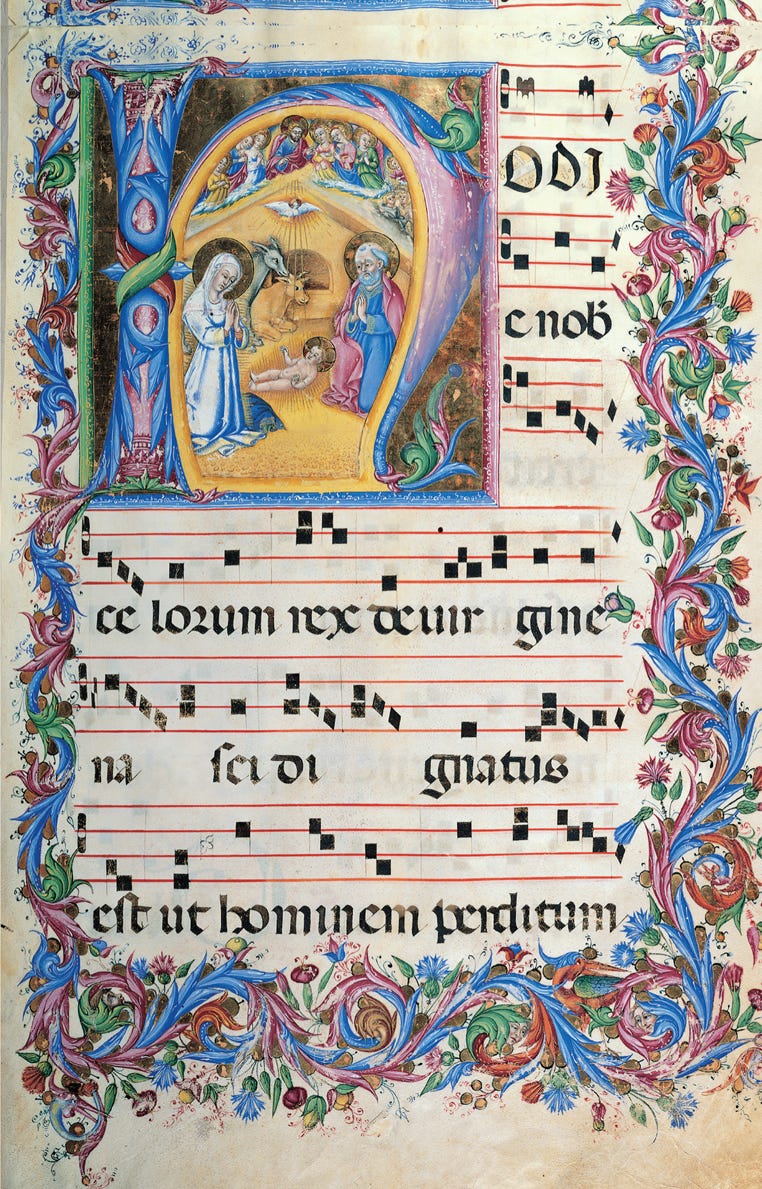 HODI
e nob̄
ce lorum rex de uir gine
na sci di gnatus
est ut hominem perditum